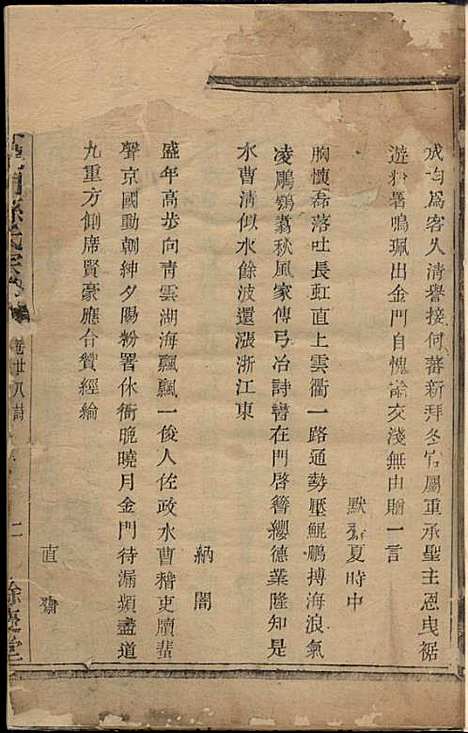 成均為客久清譽接何蕃新拜冬官屬重承聖主恩曳裾
遊粉署鳴珮出金門自愧論交淺無由贈一言
默齋夏時中
胸懷磊落吐長虹直上雲衢一路通勢壓鯤鵬搏海浪氣
凌鵰鶚翥秋風家傳弓冶詩書在門啓簪纓德業隆知是
水曹清似水餘波還漲浙江東
納閣
盛年高步向青雲湖海飄飄一俊人佐政水曹稽吏牘蜚
聲京國動朝紳夕陽粉署休衙晚曉月金門待漏頻盡道
九重方側席賢豪應合贊經綸
直
卷廿八詩
二
餘慶堂